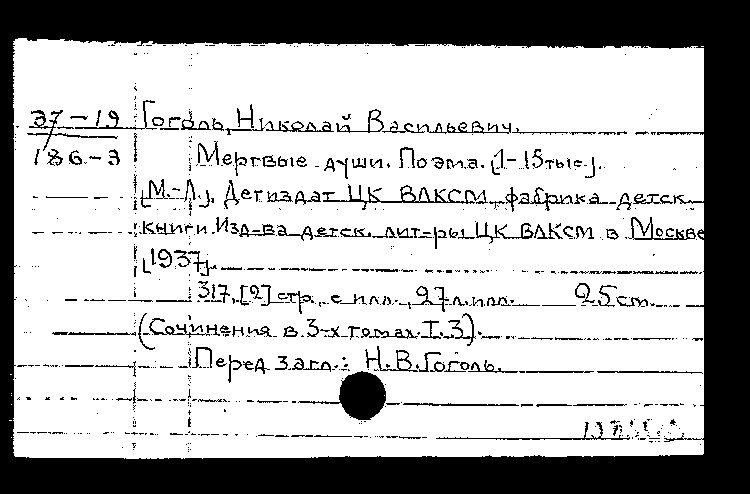 37-19 Гоголь, Николай Васильевич.
186-3 Мертвые души. Поэма. [1-15тыс.].
[М.-Л.], Детиздат ЦК ВЛКСМ, фабрика детск.
книги Изд-ва детск. лит-ры ЦК ВЛКСМ в Москве
[1937].
317,[2] стр., с илл., 27л.илл. 25cm.
(Сочинения в 3-х томах. Т. 3).
Перед загл.: Н.В.Гоголь.